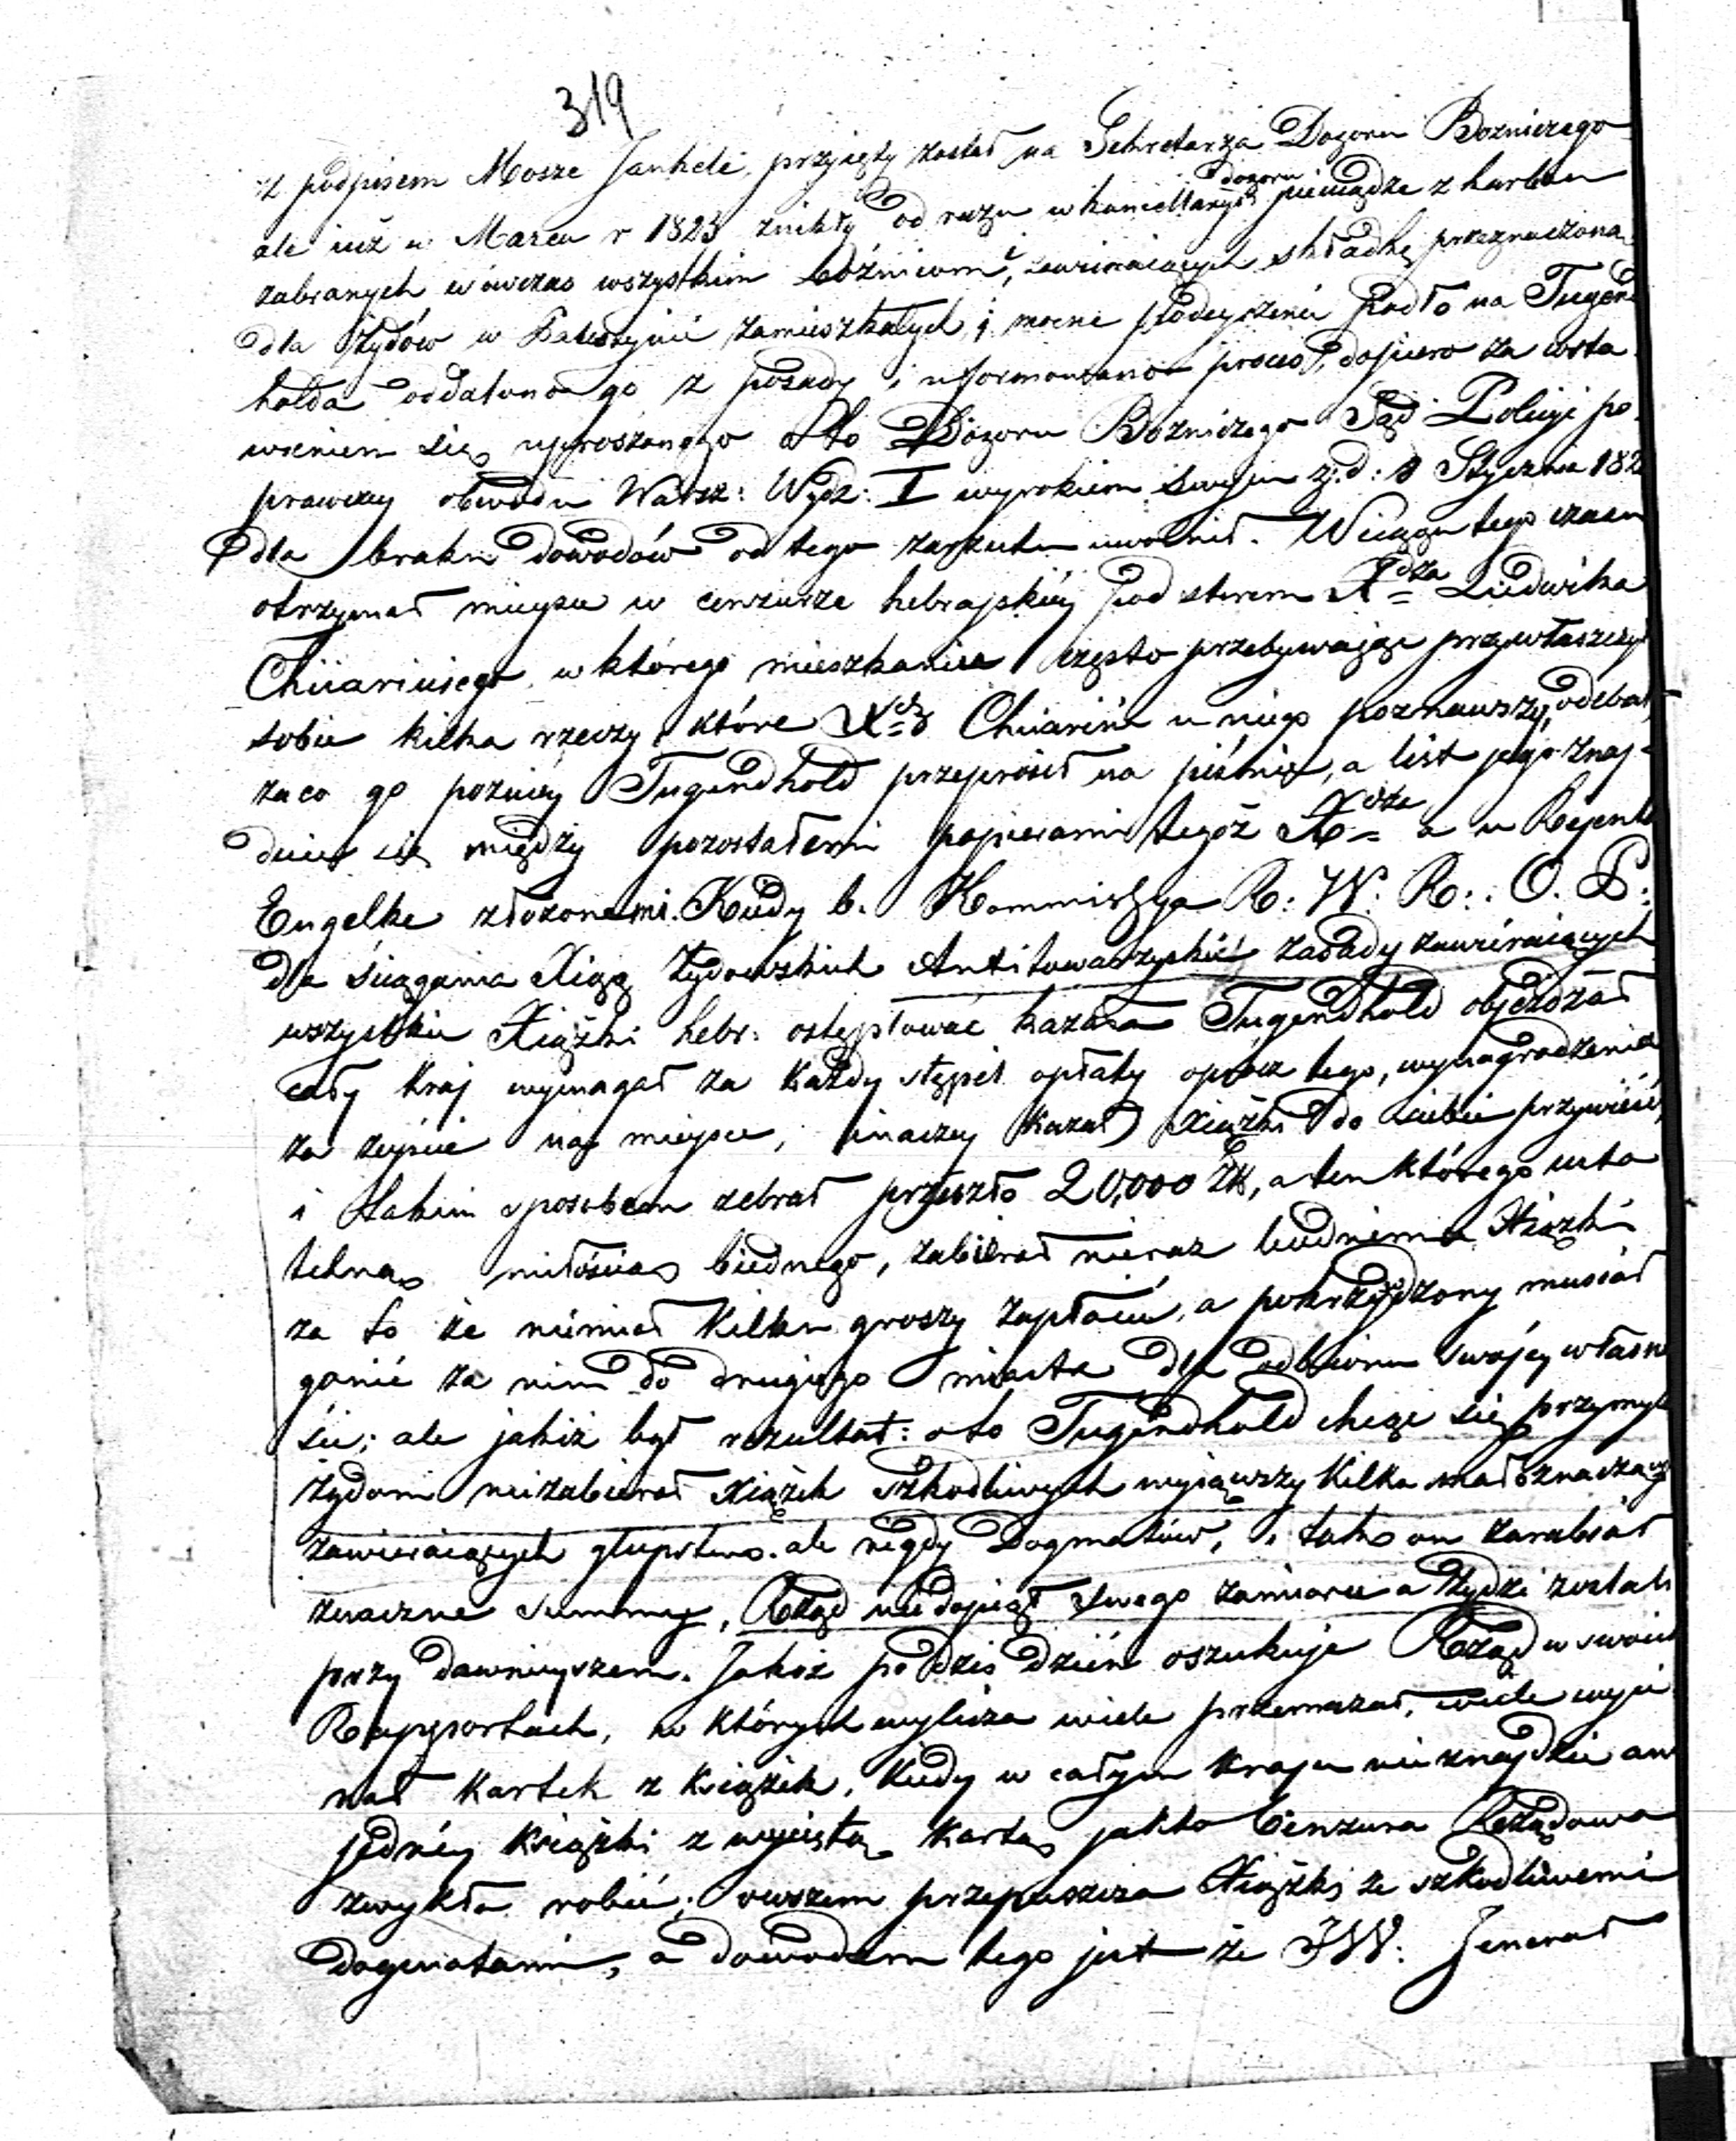 319
z podpisem Mosze Jankele, przyięty został na Sekretarza Dozoru Bozniczego
ale iuż w Marcu r 1823 znikły od razu w kancellaryi dozoru pieniądze z karbon
zabranych wówczas wszystkim bóźnicom, zawieraiących składkę przeznaczoną
dla Żydów w Palestynie zamieszkałych, i mocne podeyrzenie padło na Tugend
holda oddalono go z posady i uformowano proces, dopiero za wsta
wieniem się uproszonego o to Dozoru Bozniczego Sąd Policyi po
prawczey obwodu Warsz: Wydz: I wyrokiem swym z d: 8 Stycznia 182
dla braku dowodów od tego zarzutu uwolnił. W ciągu tego czasu
otrzymał mieysce w cenzurze hebrajskiéy pod sterem Xdza Ludwika
Chiariniego, w którego mieszkaniu często przebywaiąc przywłaszczył
sobie kilka rzeczy, które Xdz Chiarini u niego poznawszy, odebrał,
za co go pozniéy Tugendhold przeprosił na piśmie, a list jego znaj-
duie się między pozostałemi papierami tegoż Xdza a u Rejenta
Engelke złożonemi. Kiedy b. Kommissya R: W: R: O. P:
dla ściągania Xiąg Żydowskich Antitowarzyskie zasady zawieraiących
wszystkie Xiążki hebr: ostęplować kazała Tugendhold objeżdżał
cały kraj wymagał za każdy stępel opłaty oprócz tego, wynagrodzenia
za zejście na miejsce, inaczey kazał Xiążki do siebie przywieść,
i takim sposobem zebrał przeszło 20,000 Zł, a ten którego
miłością biednego, zabierał nieraz biednemu Xiążki
za to że niemiał kilku groszy zapłacić, a pokrzywdzony musiał
gonić za nim do drugiego miasta dla odbioru swojéy własno
ści; ale jakiż był rezultat: oto Tugendhold chcąc się przymyl
żydom niezabierał Xiążek szkodliwych wyiąwszy kilka mało znaczący
zawieraiących głupstwo. ale nigdy Dogmatów, i tak on zarabiał
znaczne summy, Rząd niedopiął swego zamiaru a Żydzi zostali
przy dawnieyszem. Jakoż po dziś dzień oszukuje Rząd w swoich
Rapportach, w których wylicza wiele przemazał, wiele wyci
nał kartek z książek, kiedy w całym kraju nieznajdzie ani
jednéy książki z wyciętą kartą jak to Cenzura Rządowa
zwykła robić; owszem przepuszcza Xiążki ze szkodliwemi
dogmatami, a dowodem tego jest że JW: Jenerał